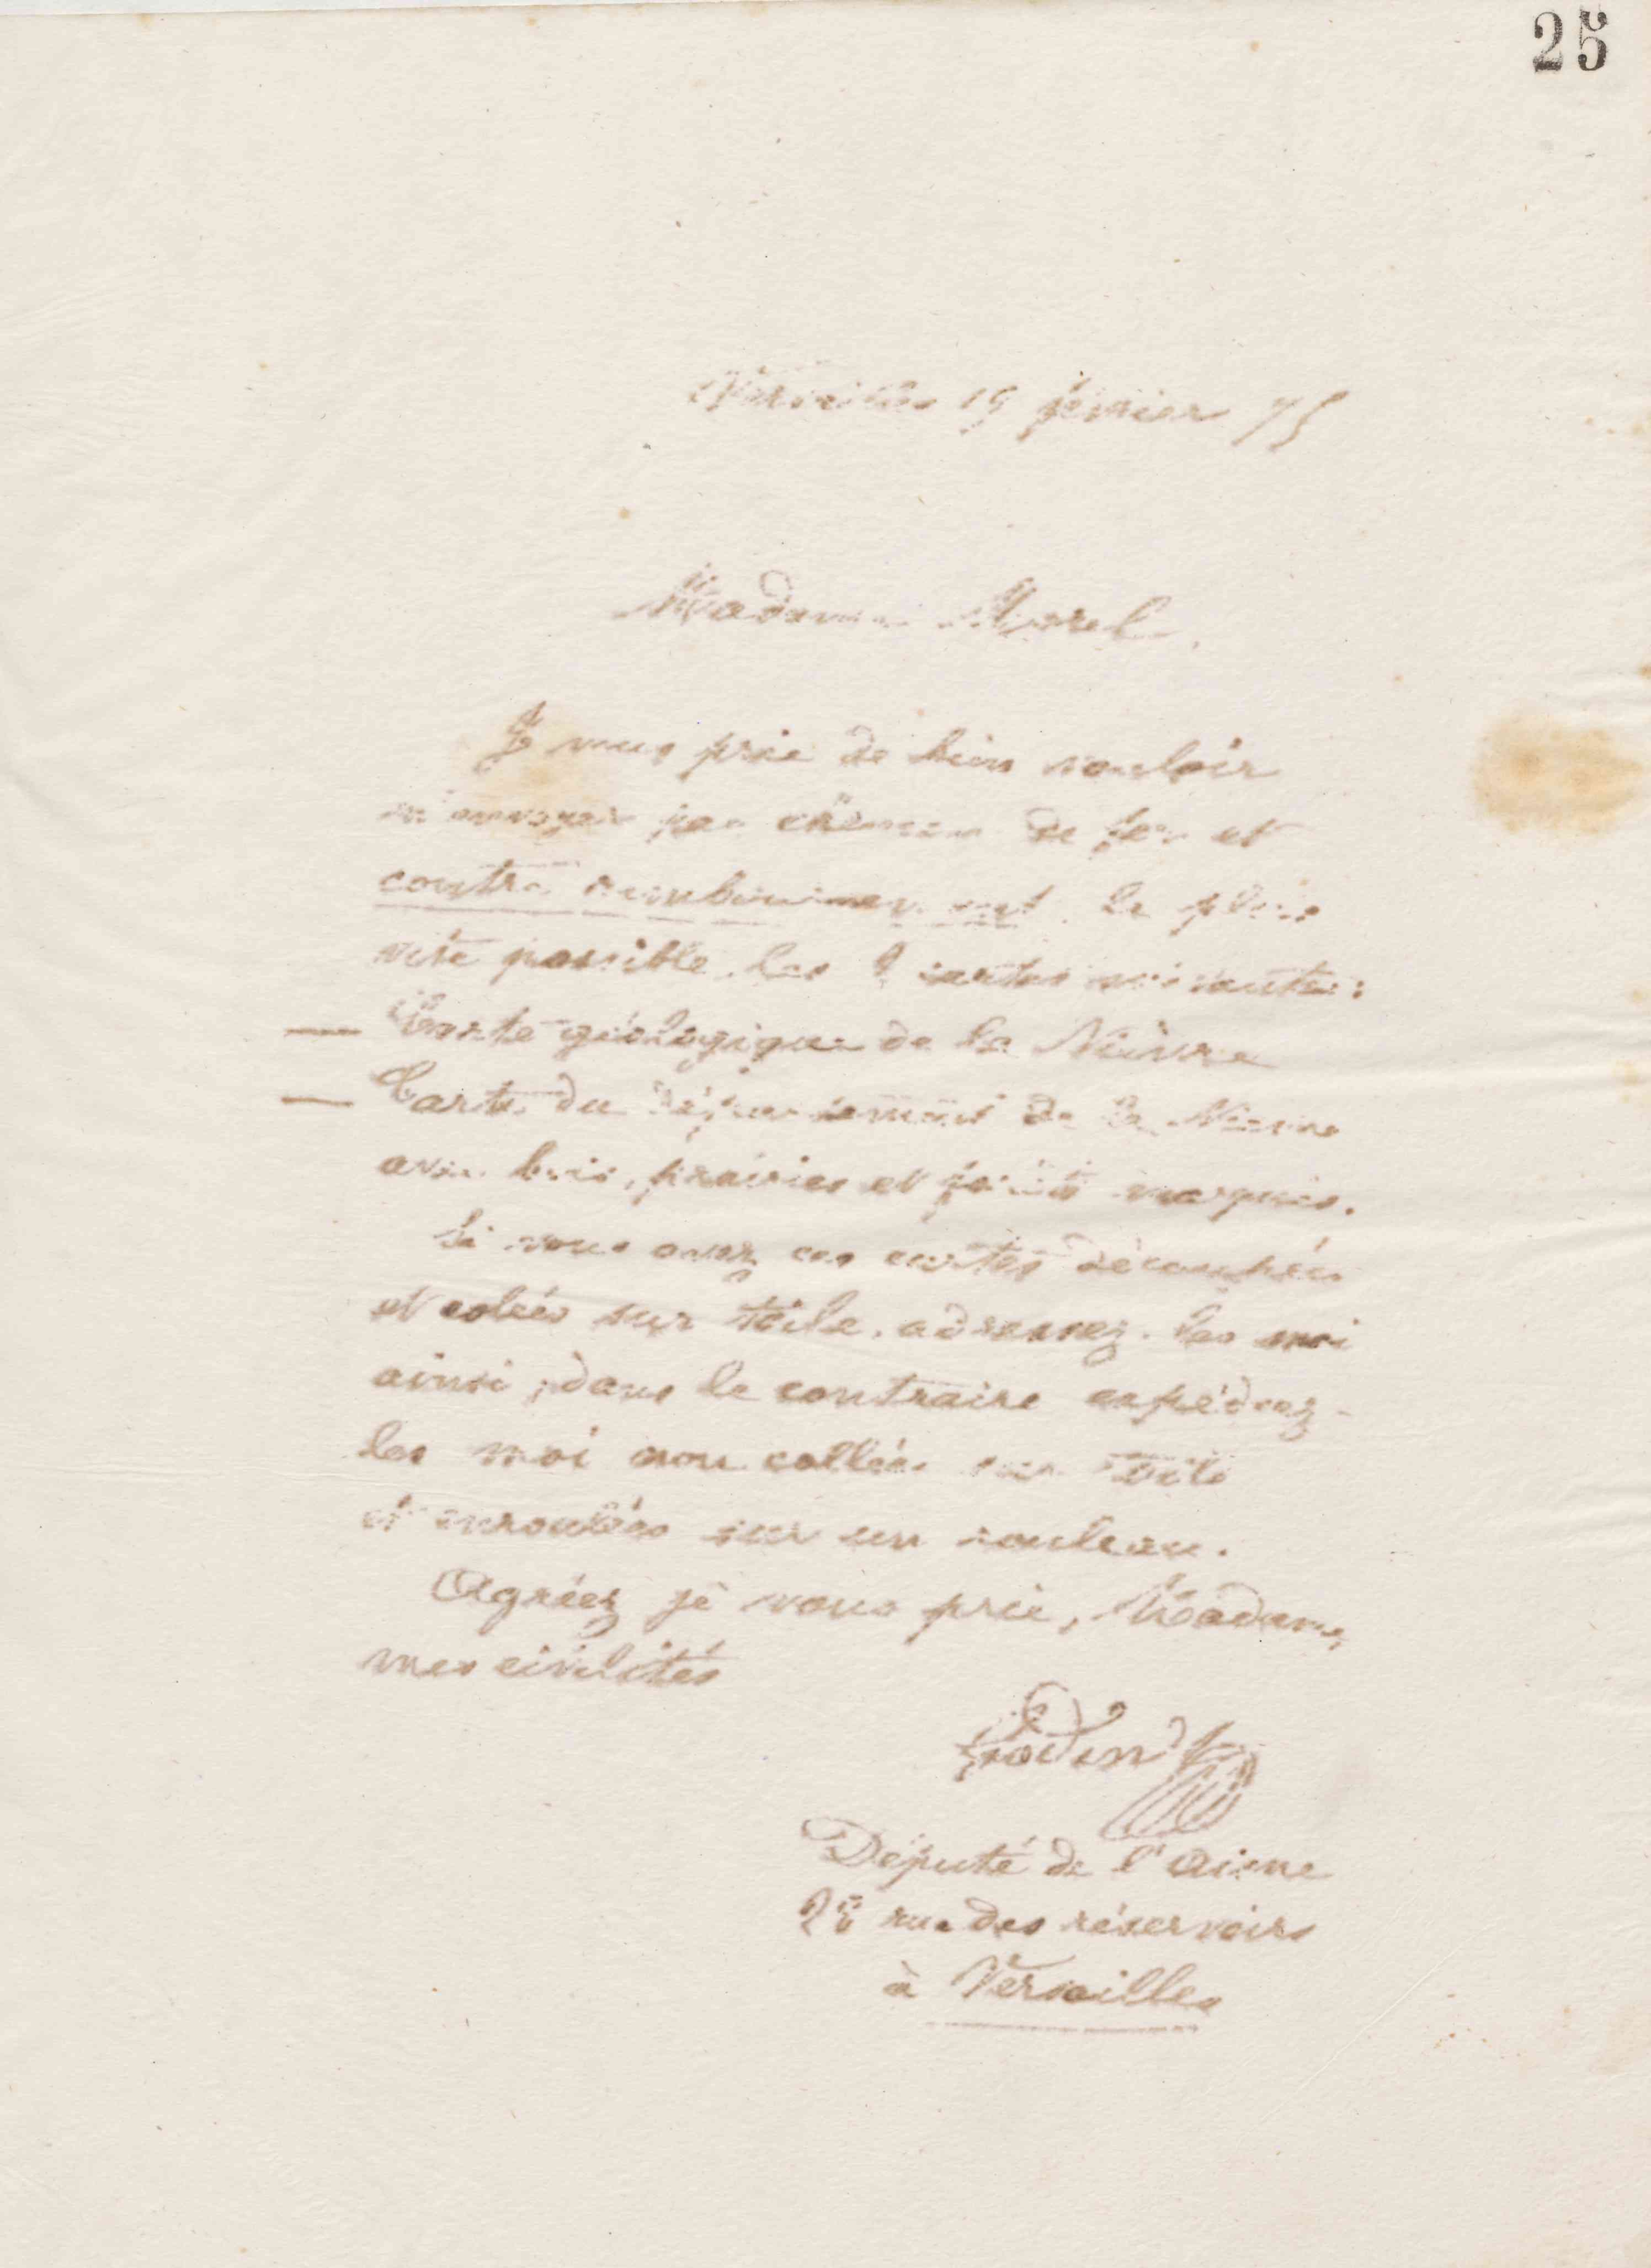 25
Versailles 15 février 75
Madame Morel,
Je vous prie de bien vouloir
m'envoyer par chemin de fer et
contre remboursement, le plus
vite possible, les 2 cartes suivantes :
— Carte géologique de la Nièvre
— Carte du département de la Nièvre
avec bois, prairies et forêts marqués.
Si vous avez ces cartes découpées
et colées sur toile, adressez-les moi
ainsi ; dans le contraire expédiez-
les moi non collées sur toile
et enroulées sur un rouleau.
Agréez je vous prie, Madame,
mes civilités
Godin
Député de l'Aisne
28 rue des réservoirs
à Versailles